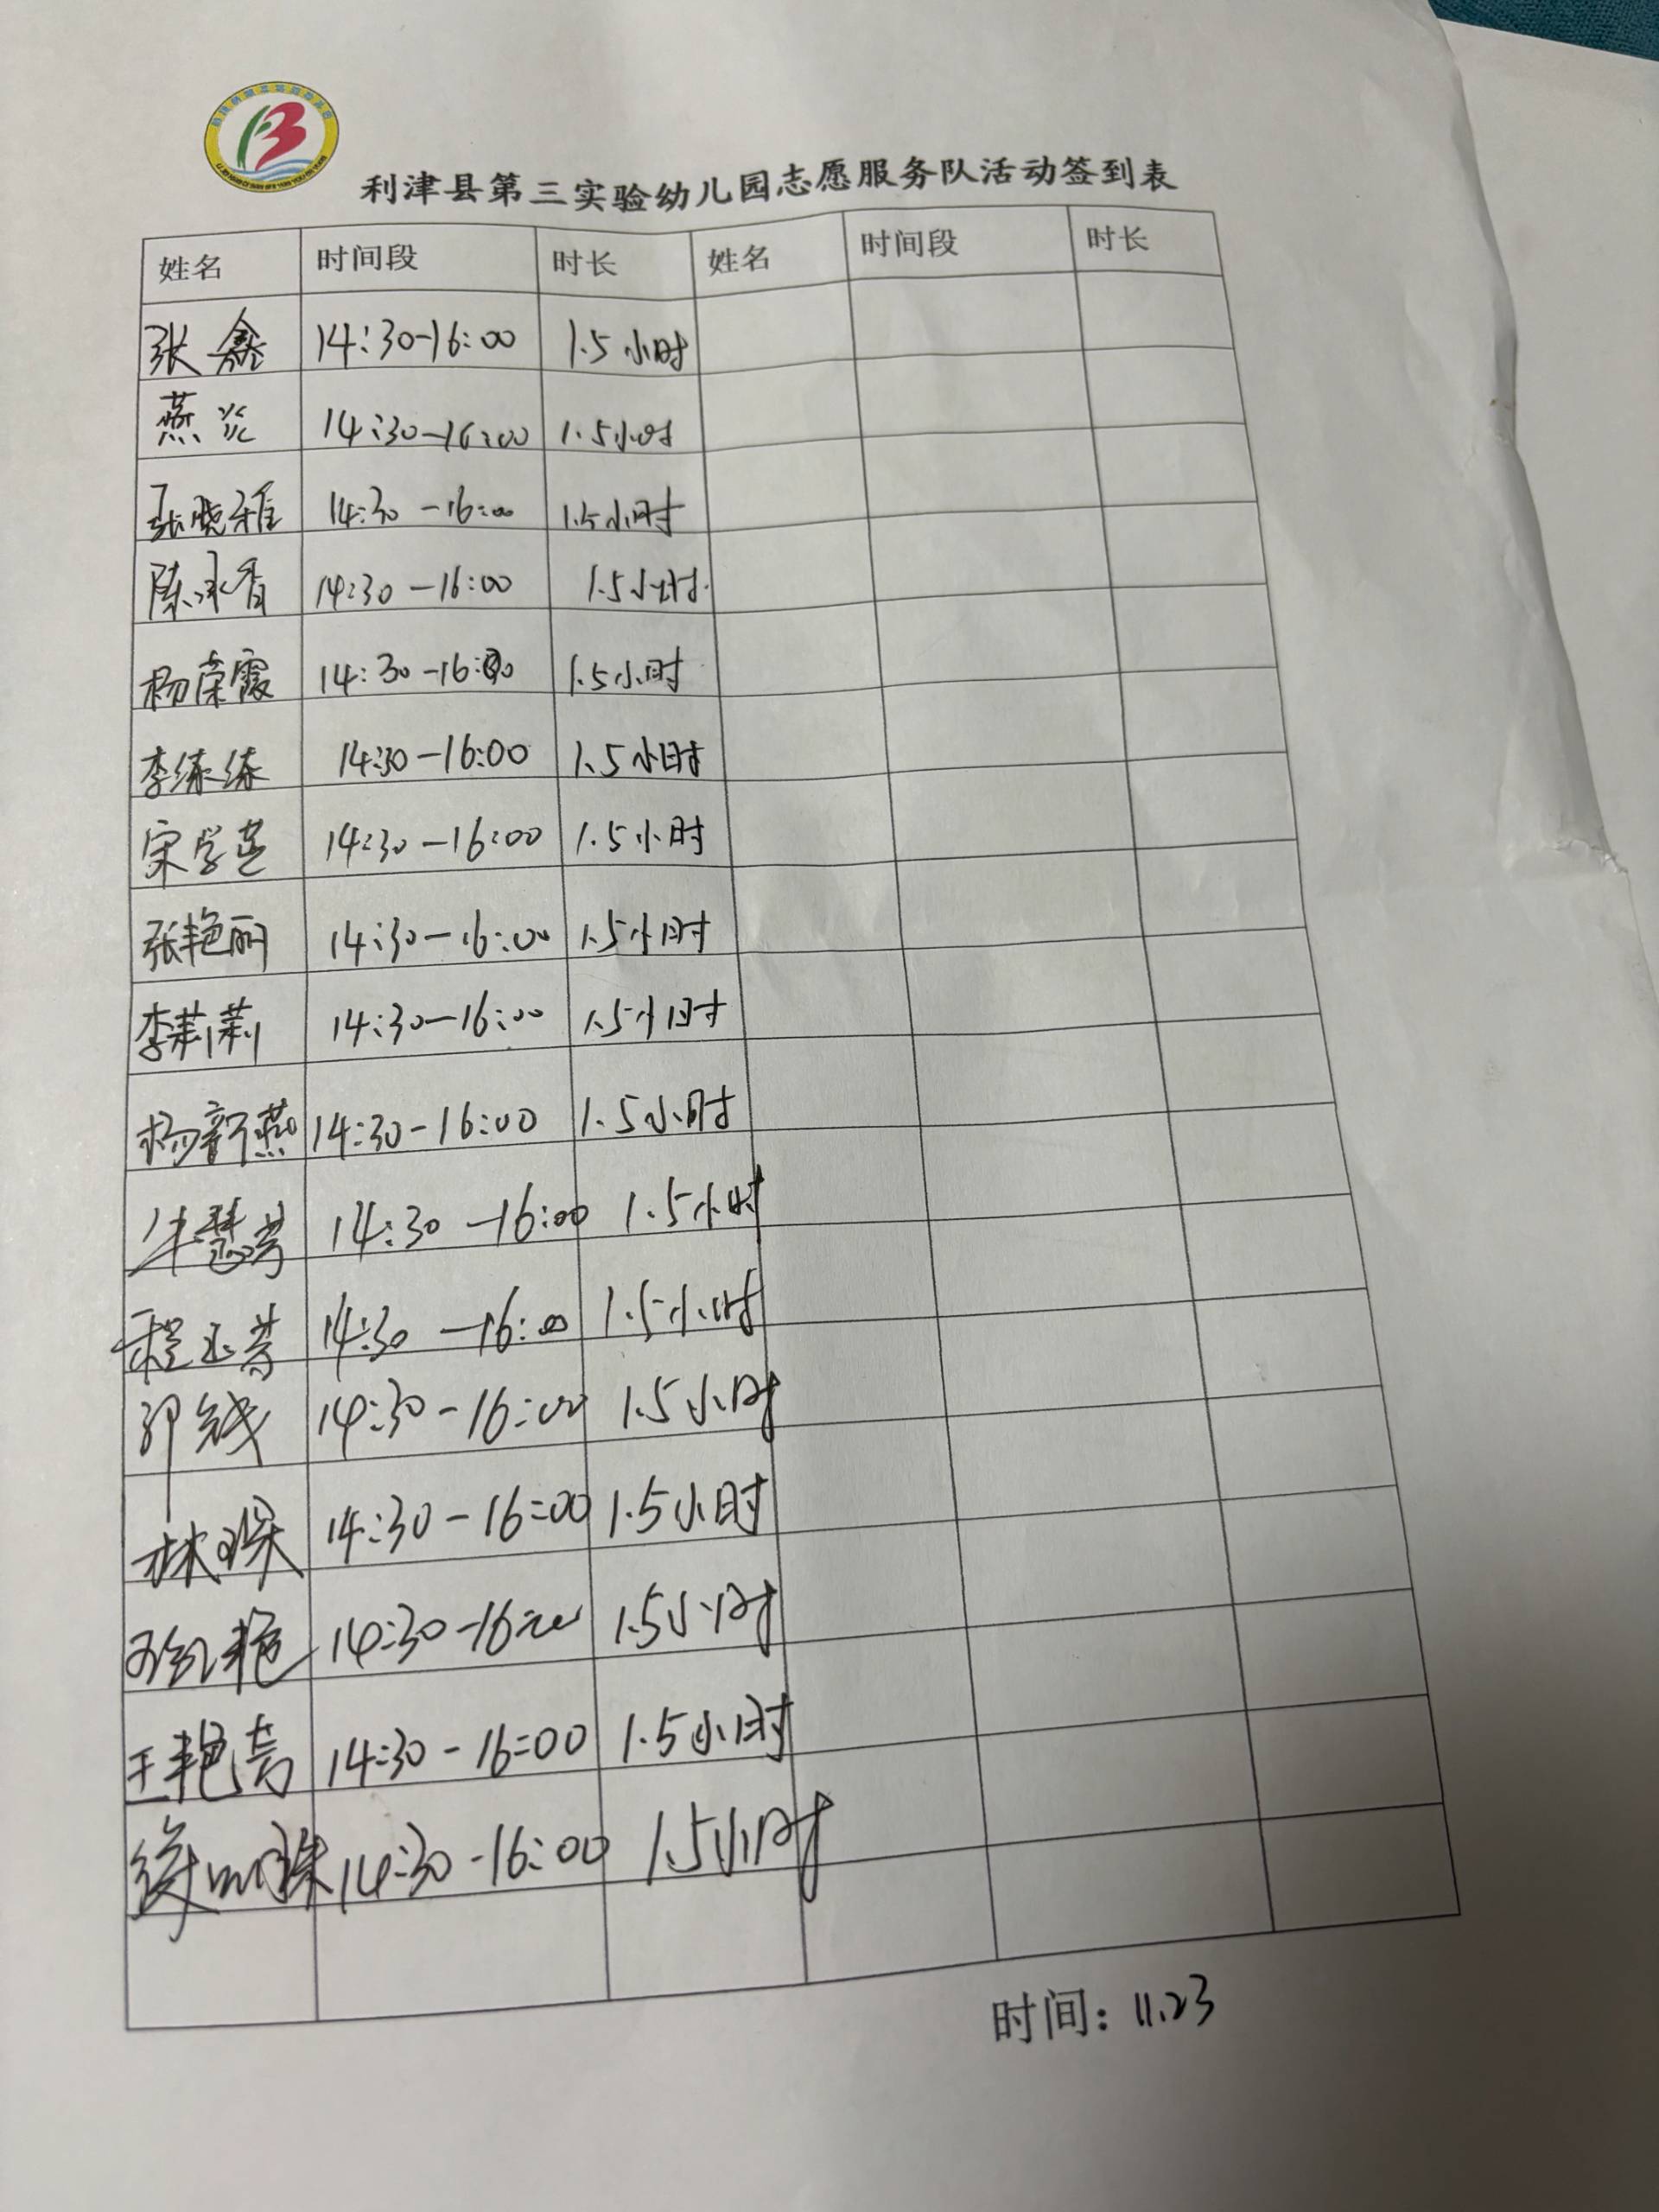 利津县第三实验幼儿园志愿服务队活动签到表
姓名 时间段 时长 姓名 时间段 时长
张鑫 14:30-16:00 1.5小时
燕 14:30-16:00 1.5小时
张晓雅 14:30-16:00 1.5小时
陈永香 14:30-16:00 1.5小时
杨荣霞 14:30-16:00 1.5小时
李练练 14:30-16:00 1.5小时
宋学莲 14:30-16:00 1.5小时
张艳丽 14:30-16:00 1.5小时
李莉莉 14:30-16:00 1.5小时
杨新燕 14:30-16:00 1.5小时
牛慧芳 14:30-16:00 1.5小时
程 芳 14:30-16:00 1.5小时
14:30-16:00 1.5小时
林琛 14:30-16:00 1.5小时
红艳 14:30-16:00 1.5小时
王艳芳 14:30-16:00 1.5小时
明珠 14:30-16:00 1.5小时
时间：11.23